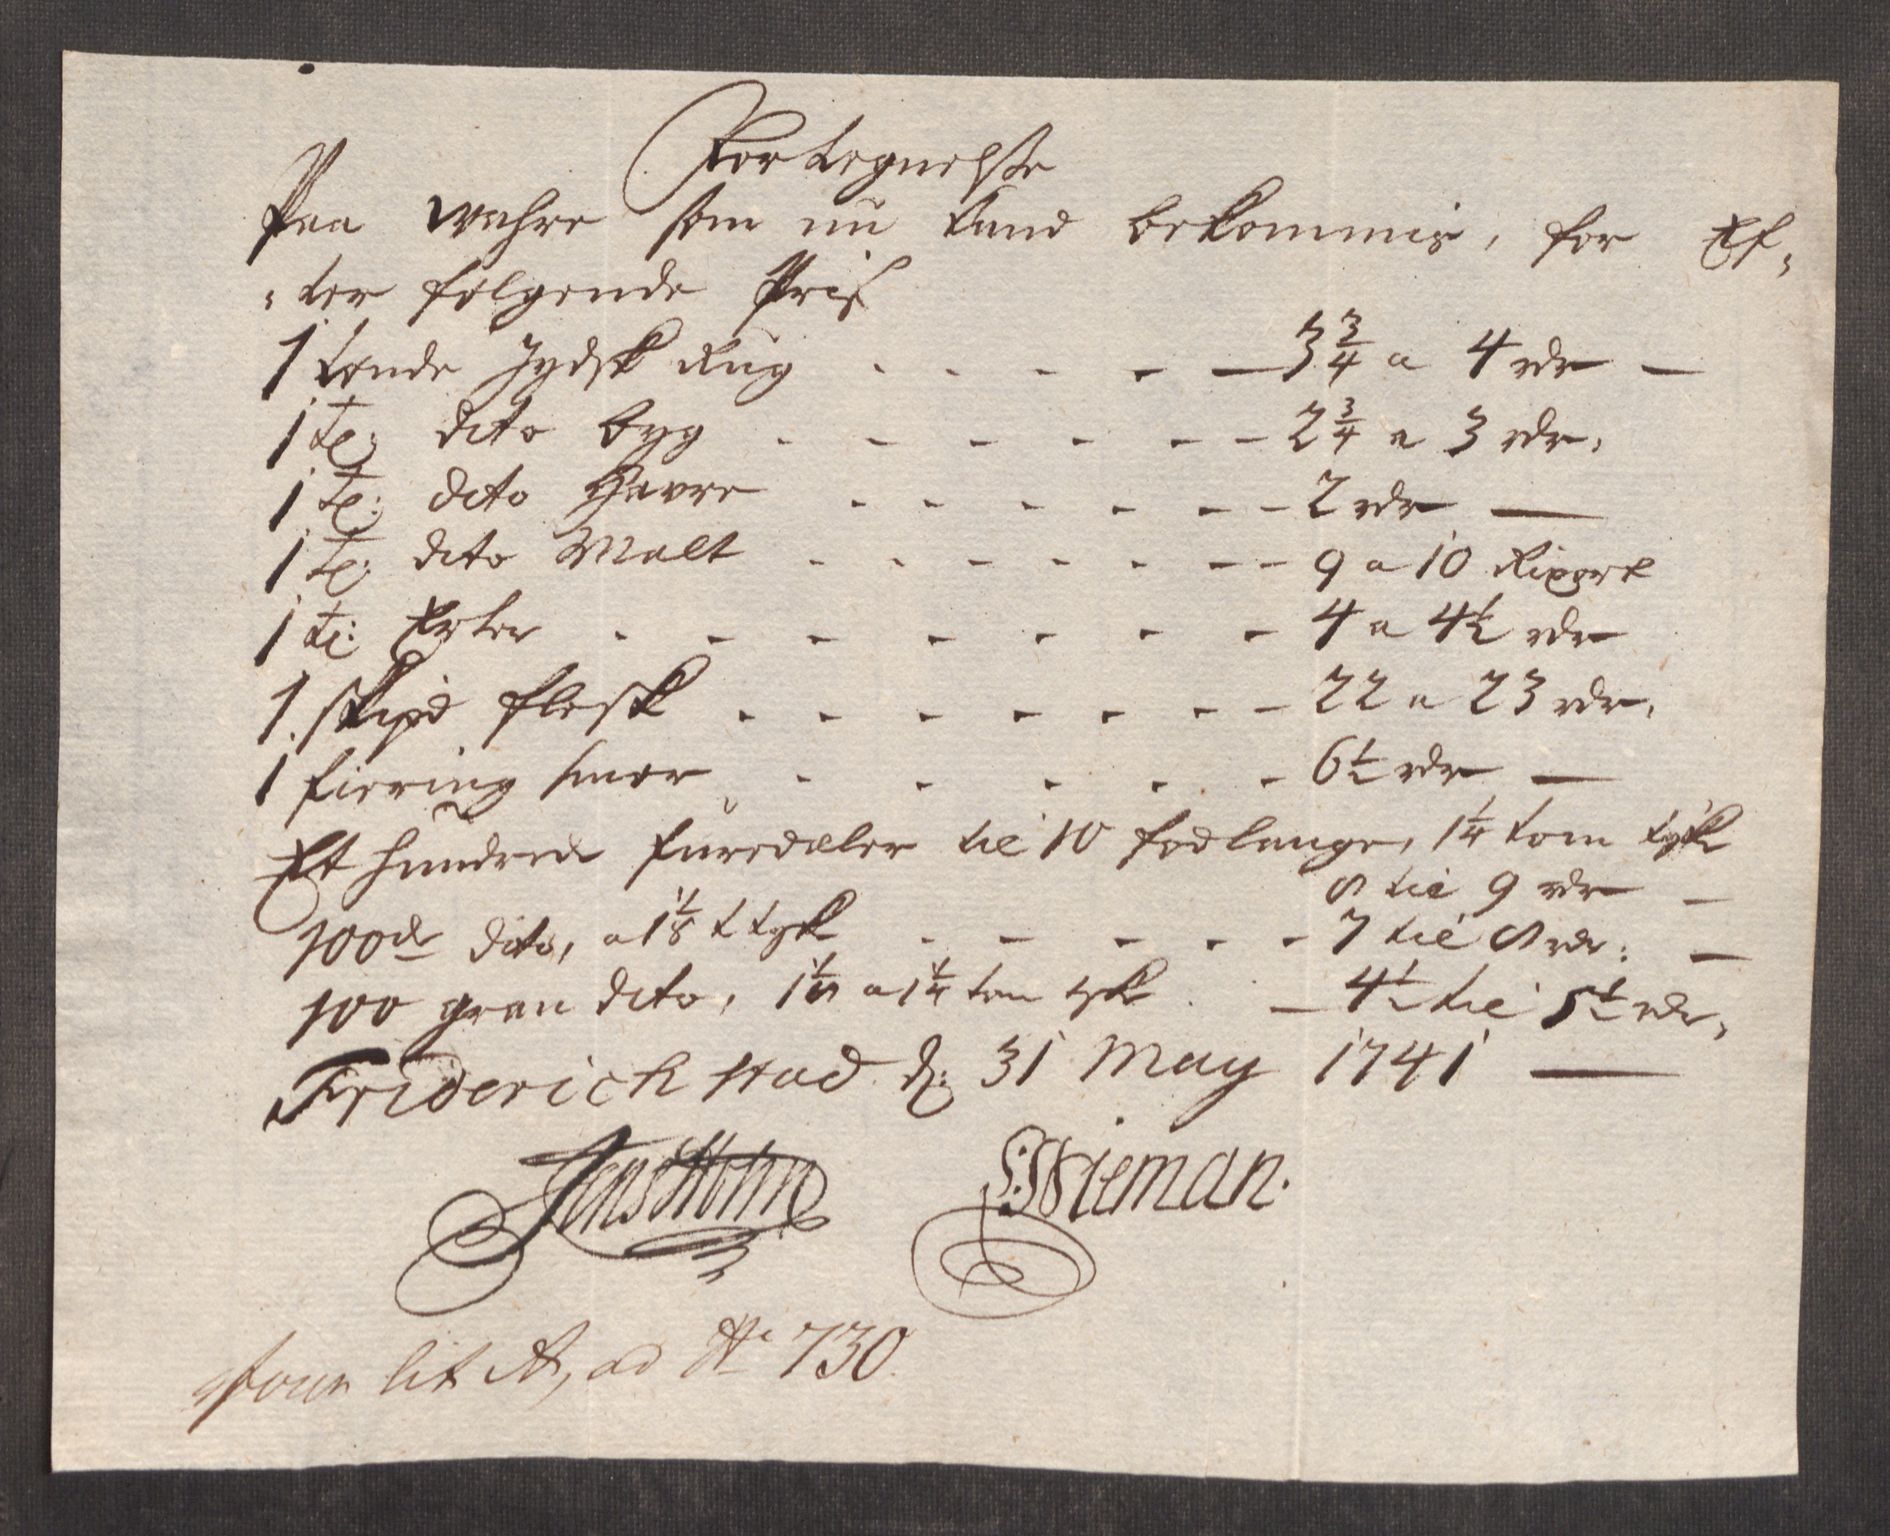 Fortegnelsse
Paa wahre som nu kand bekommis, for Ef-
-ter følgende Pris
1 tønde Jydsk Rug - - - - - 3 3/4 a 4 rdr -
1 tø: dito byg - - - - - - 2 3/4 a 3 rdr,
1 tø: dito Havre - - - - - - 2 rdr -
1 tø: dito Malt - - - - - - - 9 a 10
1 tø: Erter - - - - - - - 4 a 4 1/2 rdr
1. skipd flesk - - - - - - - 22 a 23 rdr,
1 fiering smør - - - - - 6 1/2 rdr -
Et hundrede furedæler til 10 fod lange, 1 1/4 tom tyk
8 til 9 rdr -
100de dito, a 1 1/8 t tyk - - - - - 7 til 8 rdr: -
100 gran dito, 1 1/8 a 1 1/4 tom tyk - 4 1/2 til 5 1/2 rdr,
Friderichstad d: 31 May 1741 -
Jens Holm Wieman.
lit A, ad No 730.